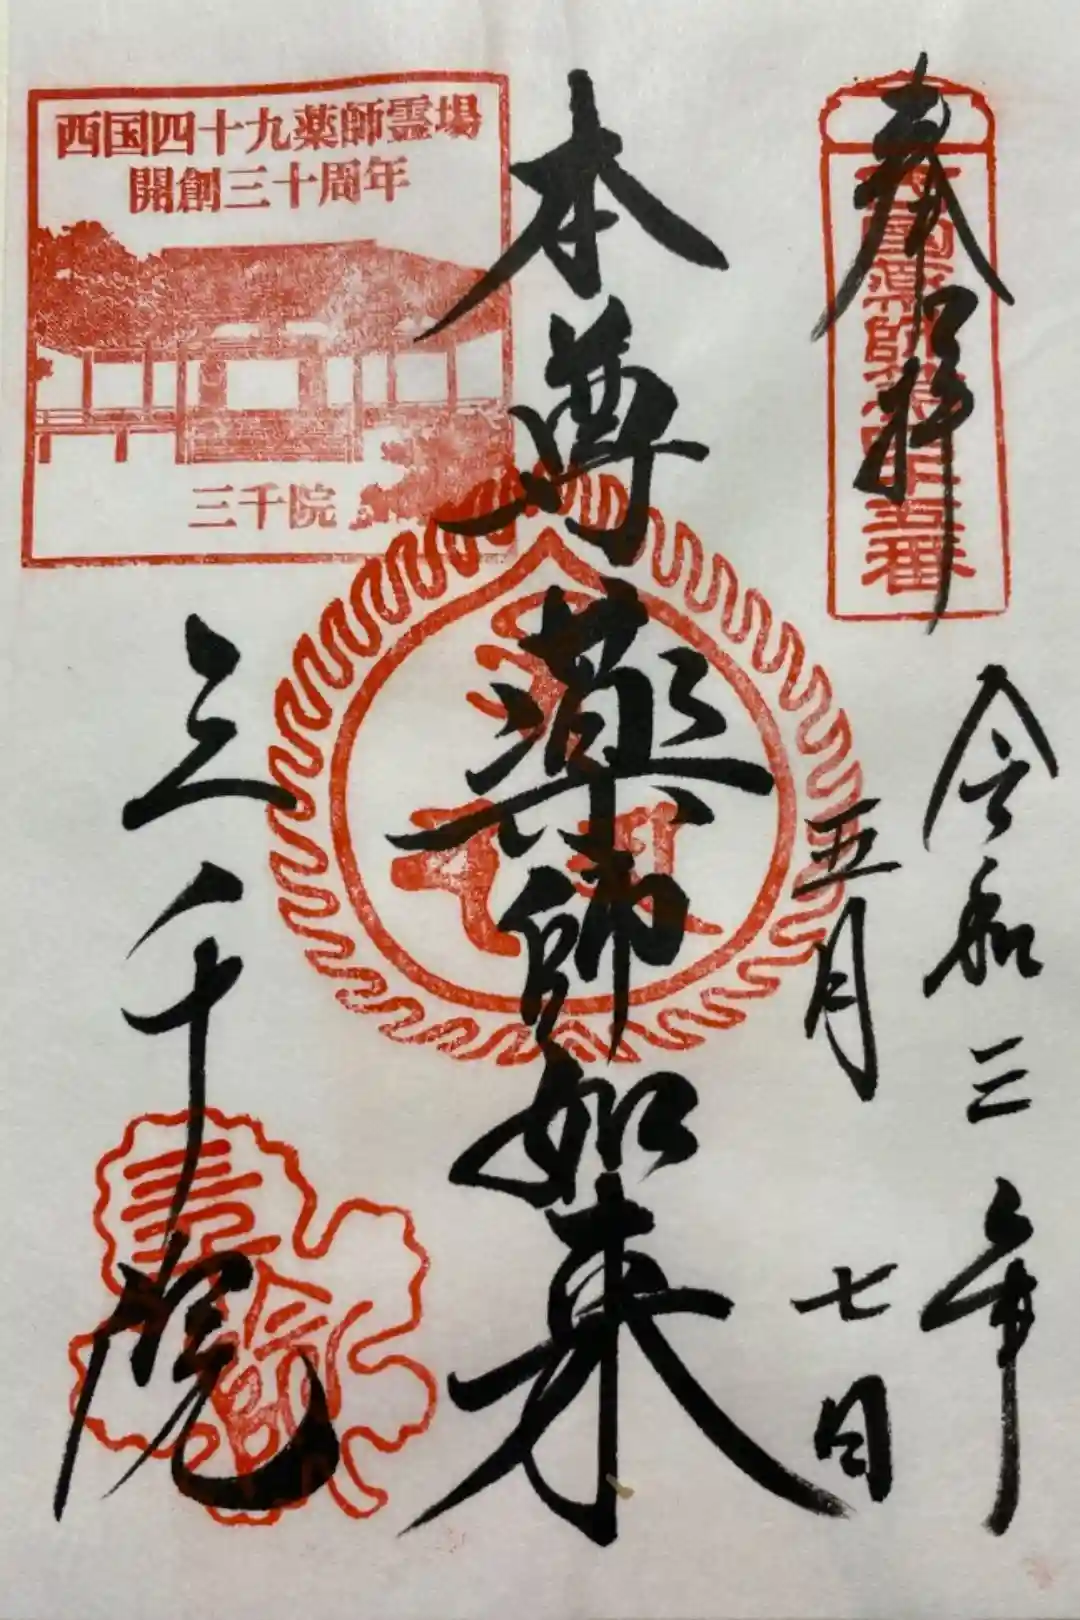 奉拝
西国薬師第四十五番
令和三年
五月七日
本尊薬師如来
西国四十九薬師霊場
開創三十周年
三千院
三千院